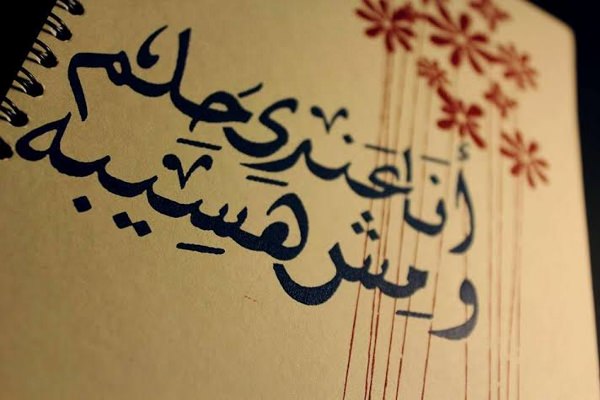 أَنَا عَندِي حَلِم
و مِش هسِيبه